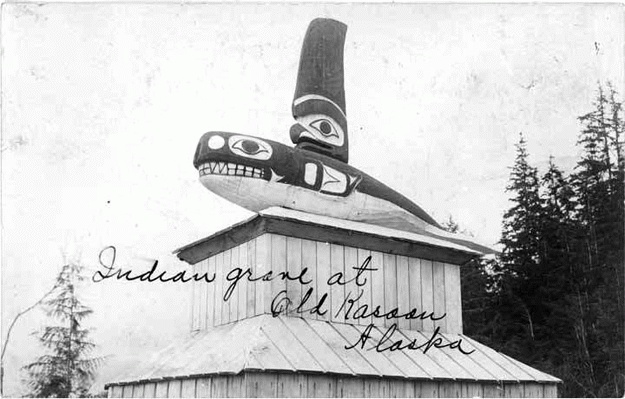 Indian grave at
Old Kasaan
Alaska